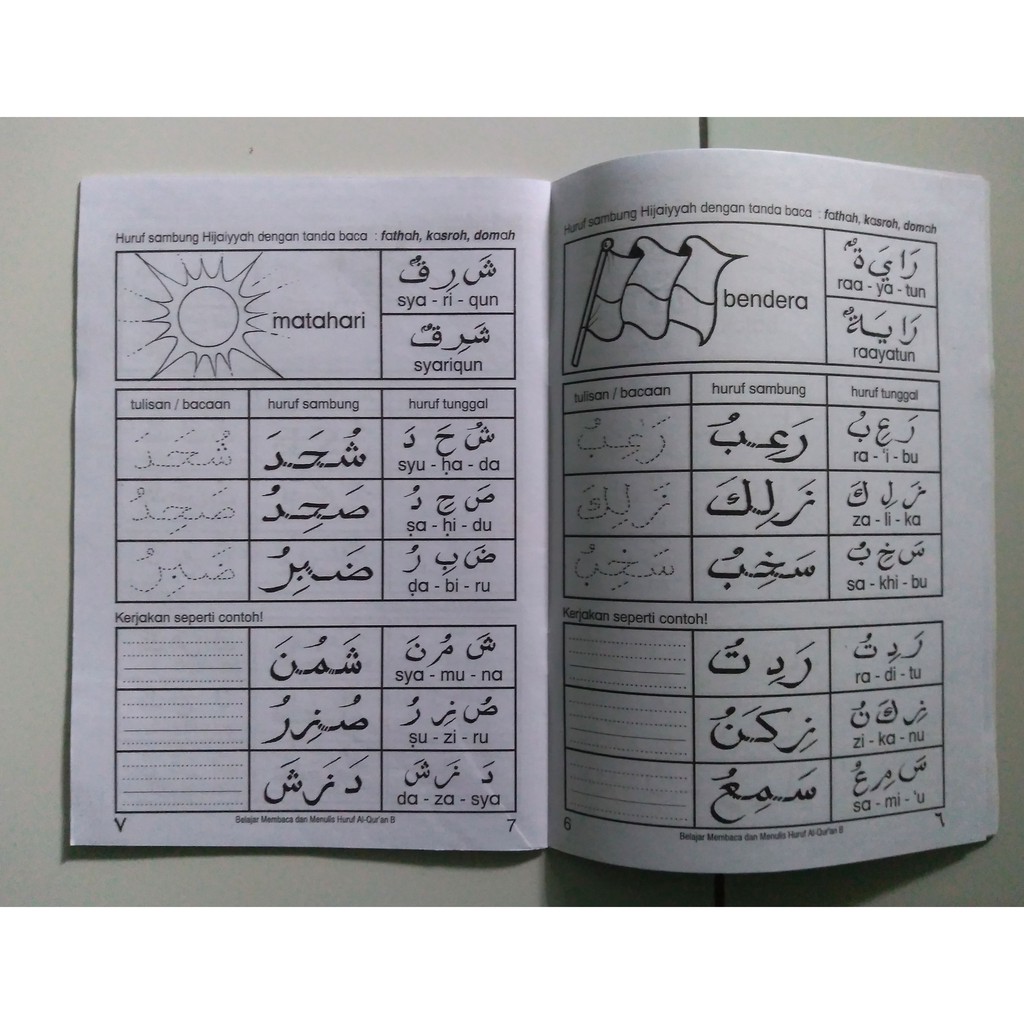 Huruf sambung Hijaiyyah dengan tanda baca : fathah, kasroh, domah
bendera
رَا يَ ةٌ
raa - ya - tun
رَا يَـةٌ
raayatun
tulisan / bacaan
huruf sambung
huruf tunggal
رَعِبُ
رَعِبُ
رَ عِ بُ
ra - 'i - bu
زَلِكَ
زَلِكَ
زَ لِ كَ
za - li - ka
سَخِبُ
سَخِبُ
سَ خِ بُ
sa - khi - bu
Kerjakan seperti contoh!
رَدِ تُ
رَ دِ تُ
ra - di - tu
زِكَنُ
زِ كَ نُ
zi - ka - nu
سَمِعُ
سَ مِ عُ
sa - mi - 'u
6
Belajar Membaca dan Menulis Huruf Al-Qur'an B
٦
Huruf sambung Hijaiyyah dengan tanda baca : fathah, kasroh, domah
matahari
شَ رِ قٌ
sya - ri - qun
شَرِقٌ
syariqun
tulisan / bacaan
huruf sambung
huruf tunggal
شُحَدَ
شُحَدَ
شُ حَ دَ
syu - ḥa - da
صَحِدُ
صَحِدُ
صَ حِ دُ
ṣa - ḥi - du
ضَبِرُ
ضَبِرُ
ضَ بِ رُ
ḍa - bi - ru
Kerjakan seperti contoh!
شَمُنَ
شَ مُ نَ
sya - mu - na
صُنِرُ
صُ نِ رُ
ṣu - zi - ru
دَ زَ شَ
دَ زَ شَ
da - za - sya
٧
Belajar Membaca dan Menulis Huruf Al-Qur'an B
7